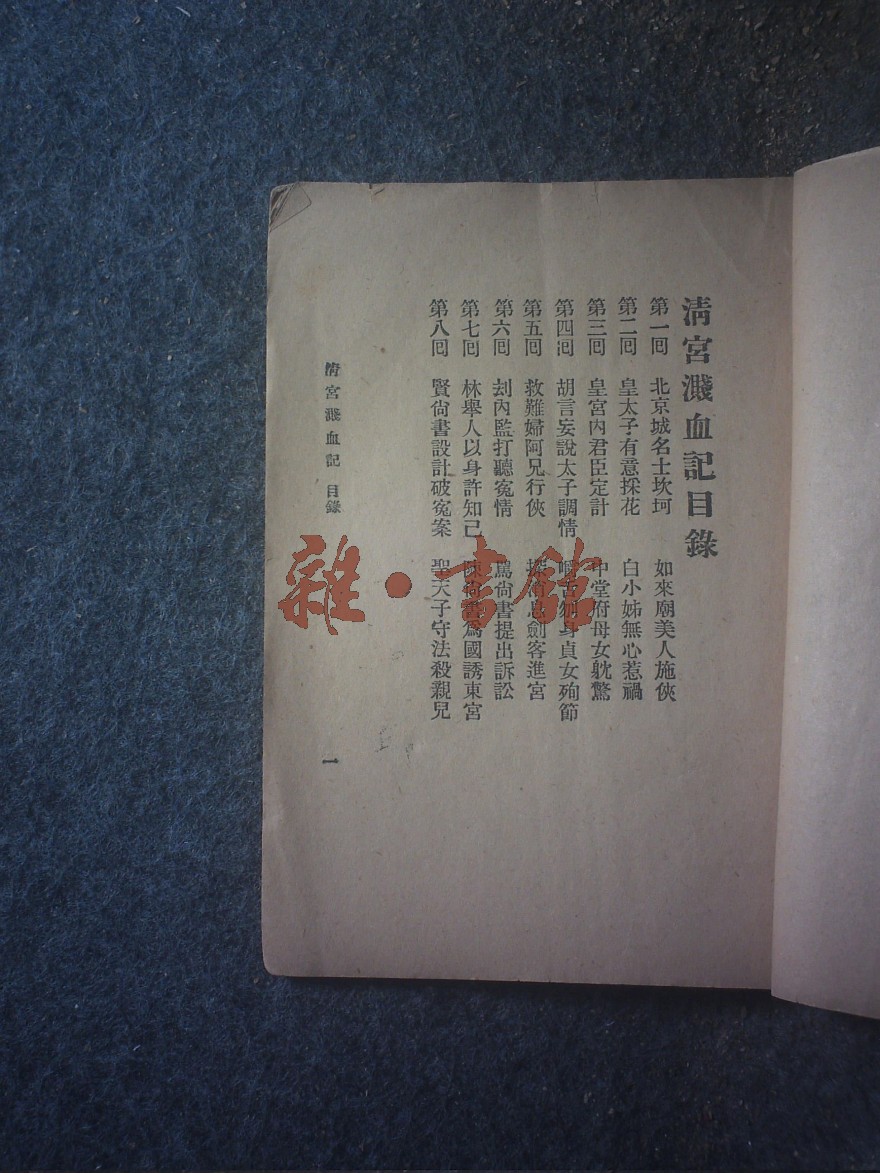 清宮濺血記目錄
第一回 北京城名士坎坷 如來廟美人施俠
第二回 皇太子有意採花 白小姊無心惹禍
第三回 皇宮內君臣定計 中堂府母女躭驚
第四回 胡言妄說太子調情 嚼舌刎身貞女殉節
第五回 救難婦阿兄行俠 劍客進宮
第六回 刦內監打聽寃情 尚書提出訴訟
第七回 林舉人以身許知己 陳尚書爲國誘東宮
第八回 賢尚書設計破寃案 聖天子守法殺親兒
清宮濺血記 目錄
一
雜·書館